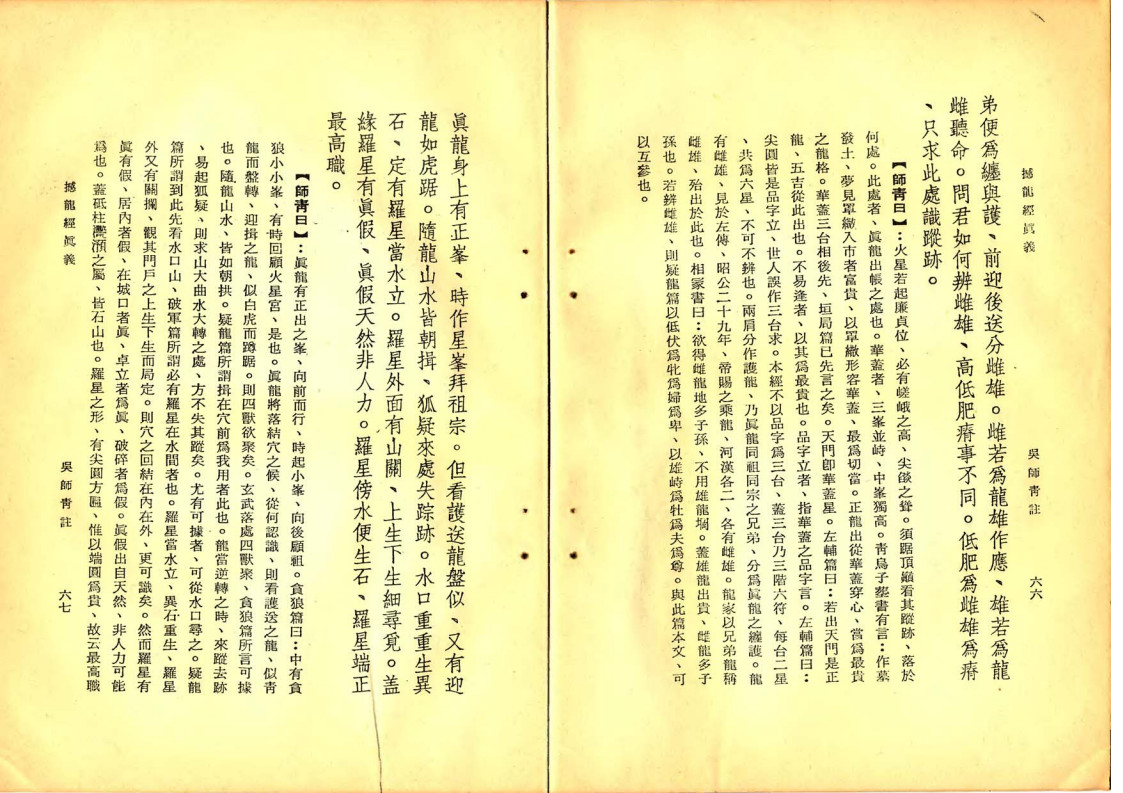 撼龍經眞義
吳師靑註
六六
弟便爲纏與護、前迎後送分雌雄。雌若爲龍雄作應、雄若爲龍
雌聽命。問君如何辨雌雄、高低肥瘠事不同。低肥爲雌雄爲瘠
、只求此處識蹤跡。
【師靑曰】:火星若起廉貞位、必有嵯峨之高、尖燄之聳。須踞頂巔看其蹤跡、落於
何處。此處者、眞龍出帳之處也。華蓋者、三峯並峙、中峯獨高。靑烏子塟書有言:作墓
發土、夢見罩繖入市者富貴、以罩繖形容華蓋、最爲切當。正龍出從華蓋穿心、當爲最貴
之龍格。華蓋三台相後先、垣局篇已先言之矣。天門卽華蓋星。左輔篇曰:若出天門是正
龍、五吉從此出也。不易逢者、以其爲最貴也。品字立者、指華蓋之品字言。左輔篇曰:
尖圓皆是品字立、世人誤作三台求。本經不以品字爲三台、蓋三台乃三階六符、每台二星
、共爲六星、不可不辨也。兩肩分作護龍、乃眞龍同祖同宗之兄弟、分爲眞龍之纏護。龍
有雌雄、見於左傳、昭公二十九年、帝賜之乘龍、河漢各二、各有雌雄。龍家以兄弟龍稱
雌雄、殆出於此也。相冢書曰:欲得雌龍地多子孫、不用雄龍堈。蓋雄龍出貴、雌龍多子
孫也。若辨雌雄、則疑龍篇以低伏爲牝爲婦爲卑、以雄峙爲牡爲夫爲尊。與此篇本文、可
以互參也。
眞龍身上有正峯、時作星峯拜祖宗。但看護送龍盤似、又有迎
龍如虎踞。隨龍山水皆朝揖、狐疑來處失踪跡。水口重重生異
石、定有羅星當水立。羅星外面有山關、上生下生細尋覓。蓋
緣羅星有眞假、眞假天然非人力。羅星傍水便生石、羅星端正
最高職。
【師靑曰】:眞龍有正出之峯、向前而行、時起小峯、向後顧祖。貪狼篇曰:中有貪
狼小小峯、有時回顧火星宮、是也。眞龍將落結穴之候、從何認識、則看護送之龍、似靑
龍而盤轉、迎揖之龍、似白虎而蹲踞。則四獸欲聚矣。玄武落處四獸聚、貪狼篇所言可據
也。隨龍山水、皆如朝拱。疑龍篇所謂揖在穴前爲我用者此也。龍當逆轉之時、來蹤去跡
、易起狐疑、則求山大曲水大轉之處、方不失其蹤矣。尤有可據者、可從水口尋之。疑龍
篇所謂到此先看水口山、破軍篇所謂必有羅星在水間者也。羅星當水立、異石重生、羅星
外又有關攔、觀其門戶之上生下生而局定。則穴之回結在內在外、更可識矣。然而羅星有
眞有假、居內者假、在城口者眞、卓立者爲眞、破碎者爲假。眞假出自天然、非人力可能
爲也。蓋砥柱灩澦之屬、皆石山也。羅星之形、有尖圓方匾、惟以端圓爲貴、故云最高職
撼龍經眞義
吳師靑註
六七